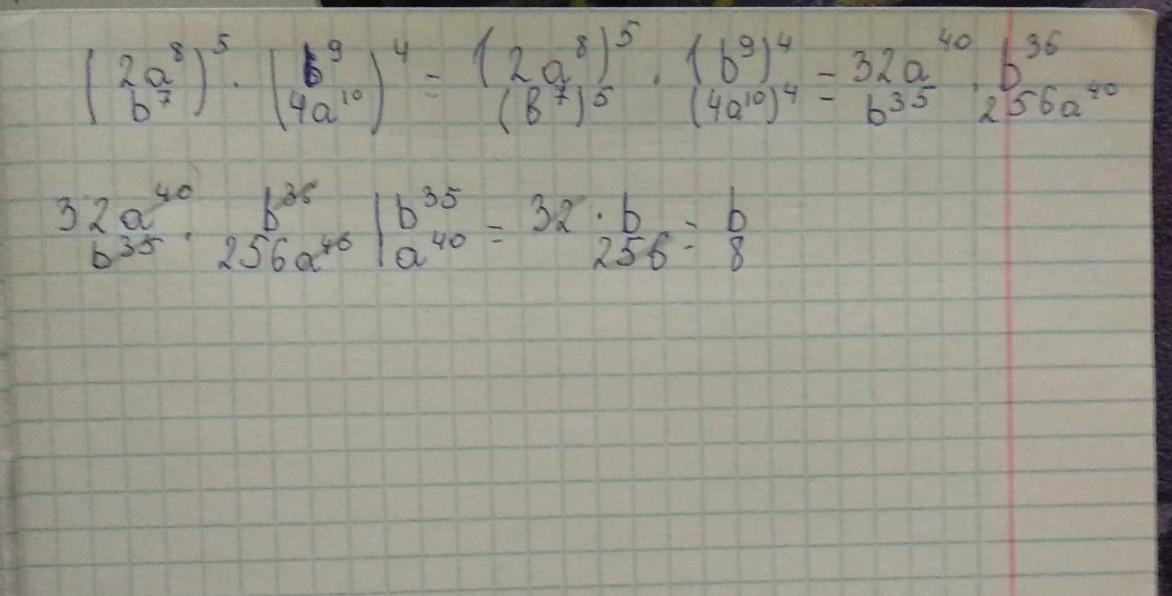 (2a⁸/b⁷)⁵ · (b⁹/4a¹⁰)⁴ = (2a⁸)⁵/(b⁷)⁵ · (b⁹)⁴/(4a¹⁰)⁴ = 32a⁴⁰/b³⁵ · b³⁶/256a⁴⁰
32a⁴⁰/b³⁵ · b³⁶/256a⁴⁰ | b³⁵/a⁴⁰ = 32 · b/256 = b/8